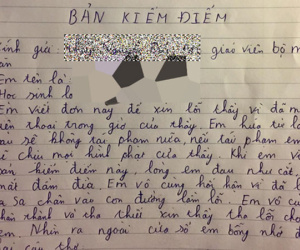 BẢN KIỂM ĐIỂM
ính gửi giáo viên bộ m
Em tên là:
Học sinh lớ
Em viết đơn này để xin lỗi thầy vì đã m
iện thoại trong giờ của thầy. Em hứa từ l
au sẽ không tái phạm nữa, nếu tái phạm em
chịu mọi hình phạt của thầy. Khi em v
bản kiểm điểm này, lòng em đau như cắt
mắt đầm đìa. Em vô cùng hối hận vì đã l
sa chân vào con đường lầm lỗi. Em vô cù
hân thành và tha thiết xin thầy tha lỗi cho
em. Nhìn ra ngoài cửa sổ em bỗng nhớ đ